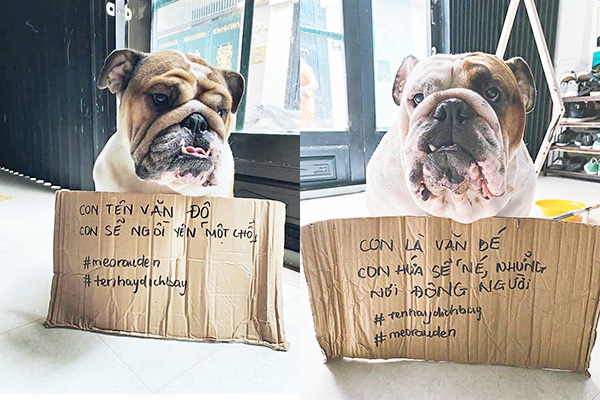 CON TÊN VĂN ĐÔ
CON SẼ NGỒI YÊN MỘT CHỖ,
#meorauden
#tenhaydichbay
CON LÀ VĂN ĐẾ
CON HỨA SẼ NÉ, NHỮNG
NƠI ĐÔNG NGƯỜI
#tenhaydichbay
#meorauden